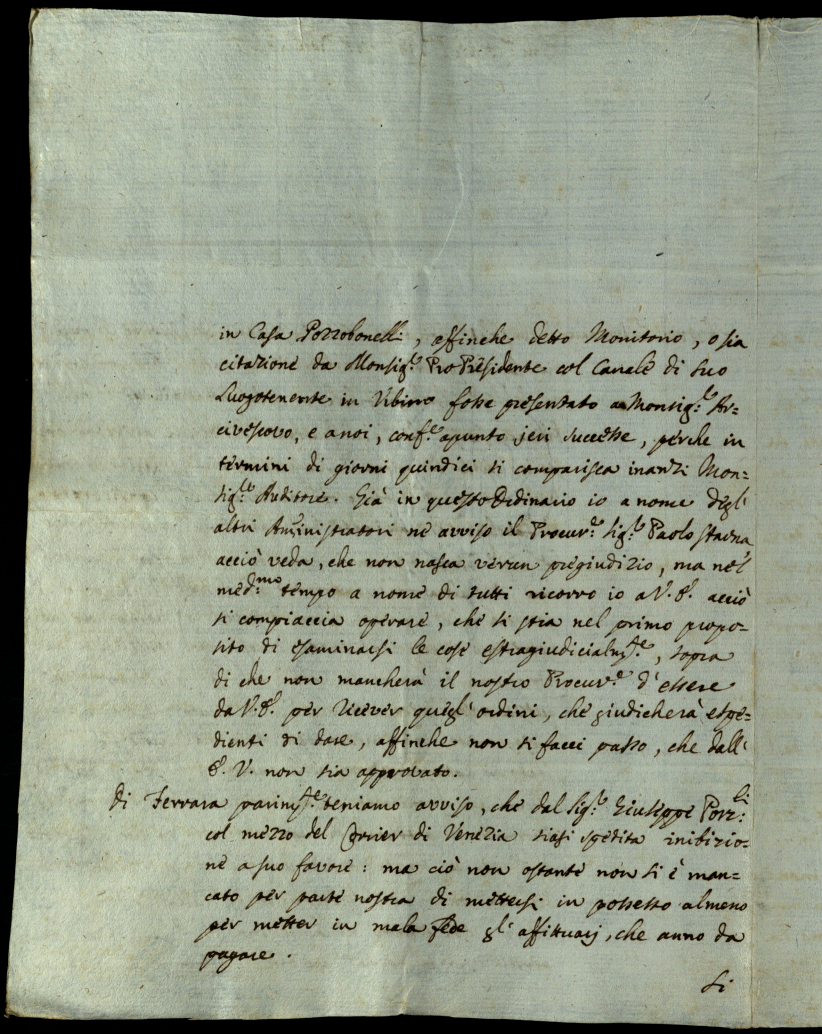 in Casa Pozzobonelli, affinche detto Monitorio, o sia
citazione da Monsig.re Pro Presidente col Canale di suo
Luogotenente in Urbino fosse presentato a Monsig.re Ar=
civescovo, e a noi, conf.e apunto jeri successe, perche in
termini di giorni quindici si comparisca inanzi Mon=
sig.re Auditore. Già in questo Ordinario io a nome degl'
altri Aministratori ne avviso il Procur.e Sig.r Paolo
acciò veda, che non nasca verun pregiudizio, ma nel
med.mo tempo a nome di tutti ricorro io a V. E. acciò
si compiaccia operare, che si stia nel primo propo=
sito di esaminarsi le cose estragiudicialm.te, sopra
di che non mancherà il nostro Procur.e d'essere
da V. E. per ricever quegl'ordini, che giudicherà espe=
dienti di dare, affinche non si facci passo, che dall'
E. V. non sia approvato.
Di Ferrara parim.te teniamo avviso, che dal Sig.r Giuseppe Pozz.li
col mezzo del Corrier di Venezia siasi spedita inibizio=
ne a suo favore: ma ciò non ostante non si è man=
cato per parte nostra di mettersi in possesso almeno
per metter in mala fede gl'affittuarj, che anno da
pagare.
Si